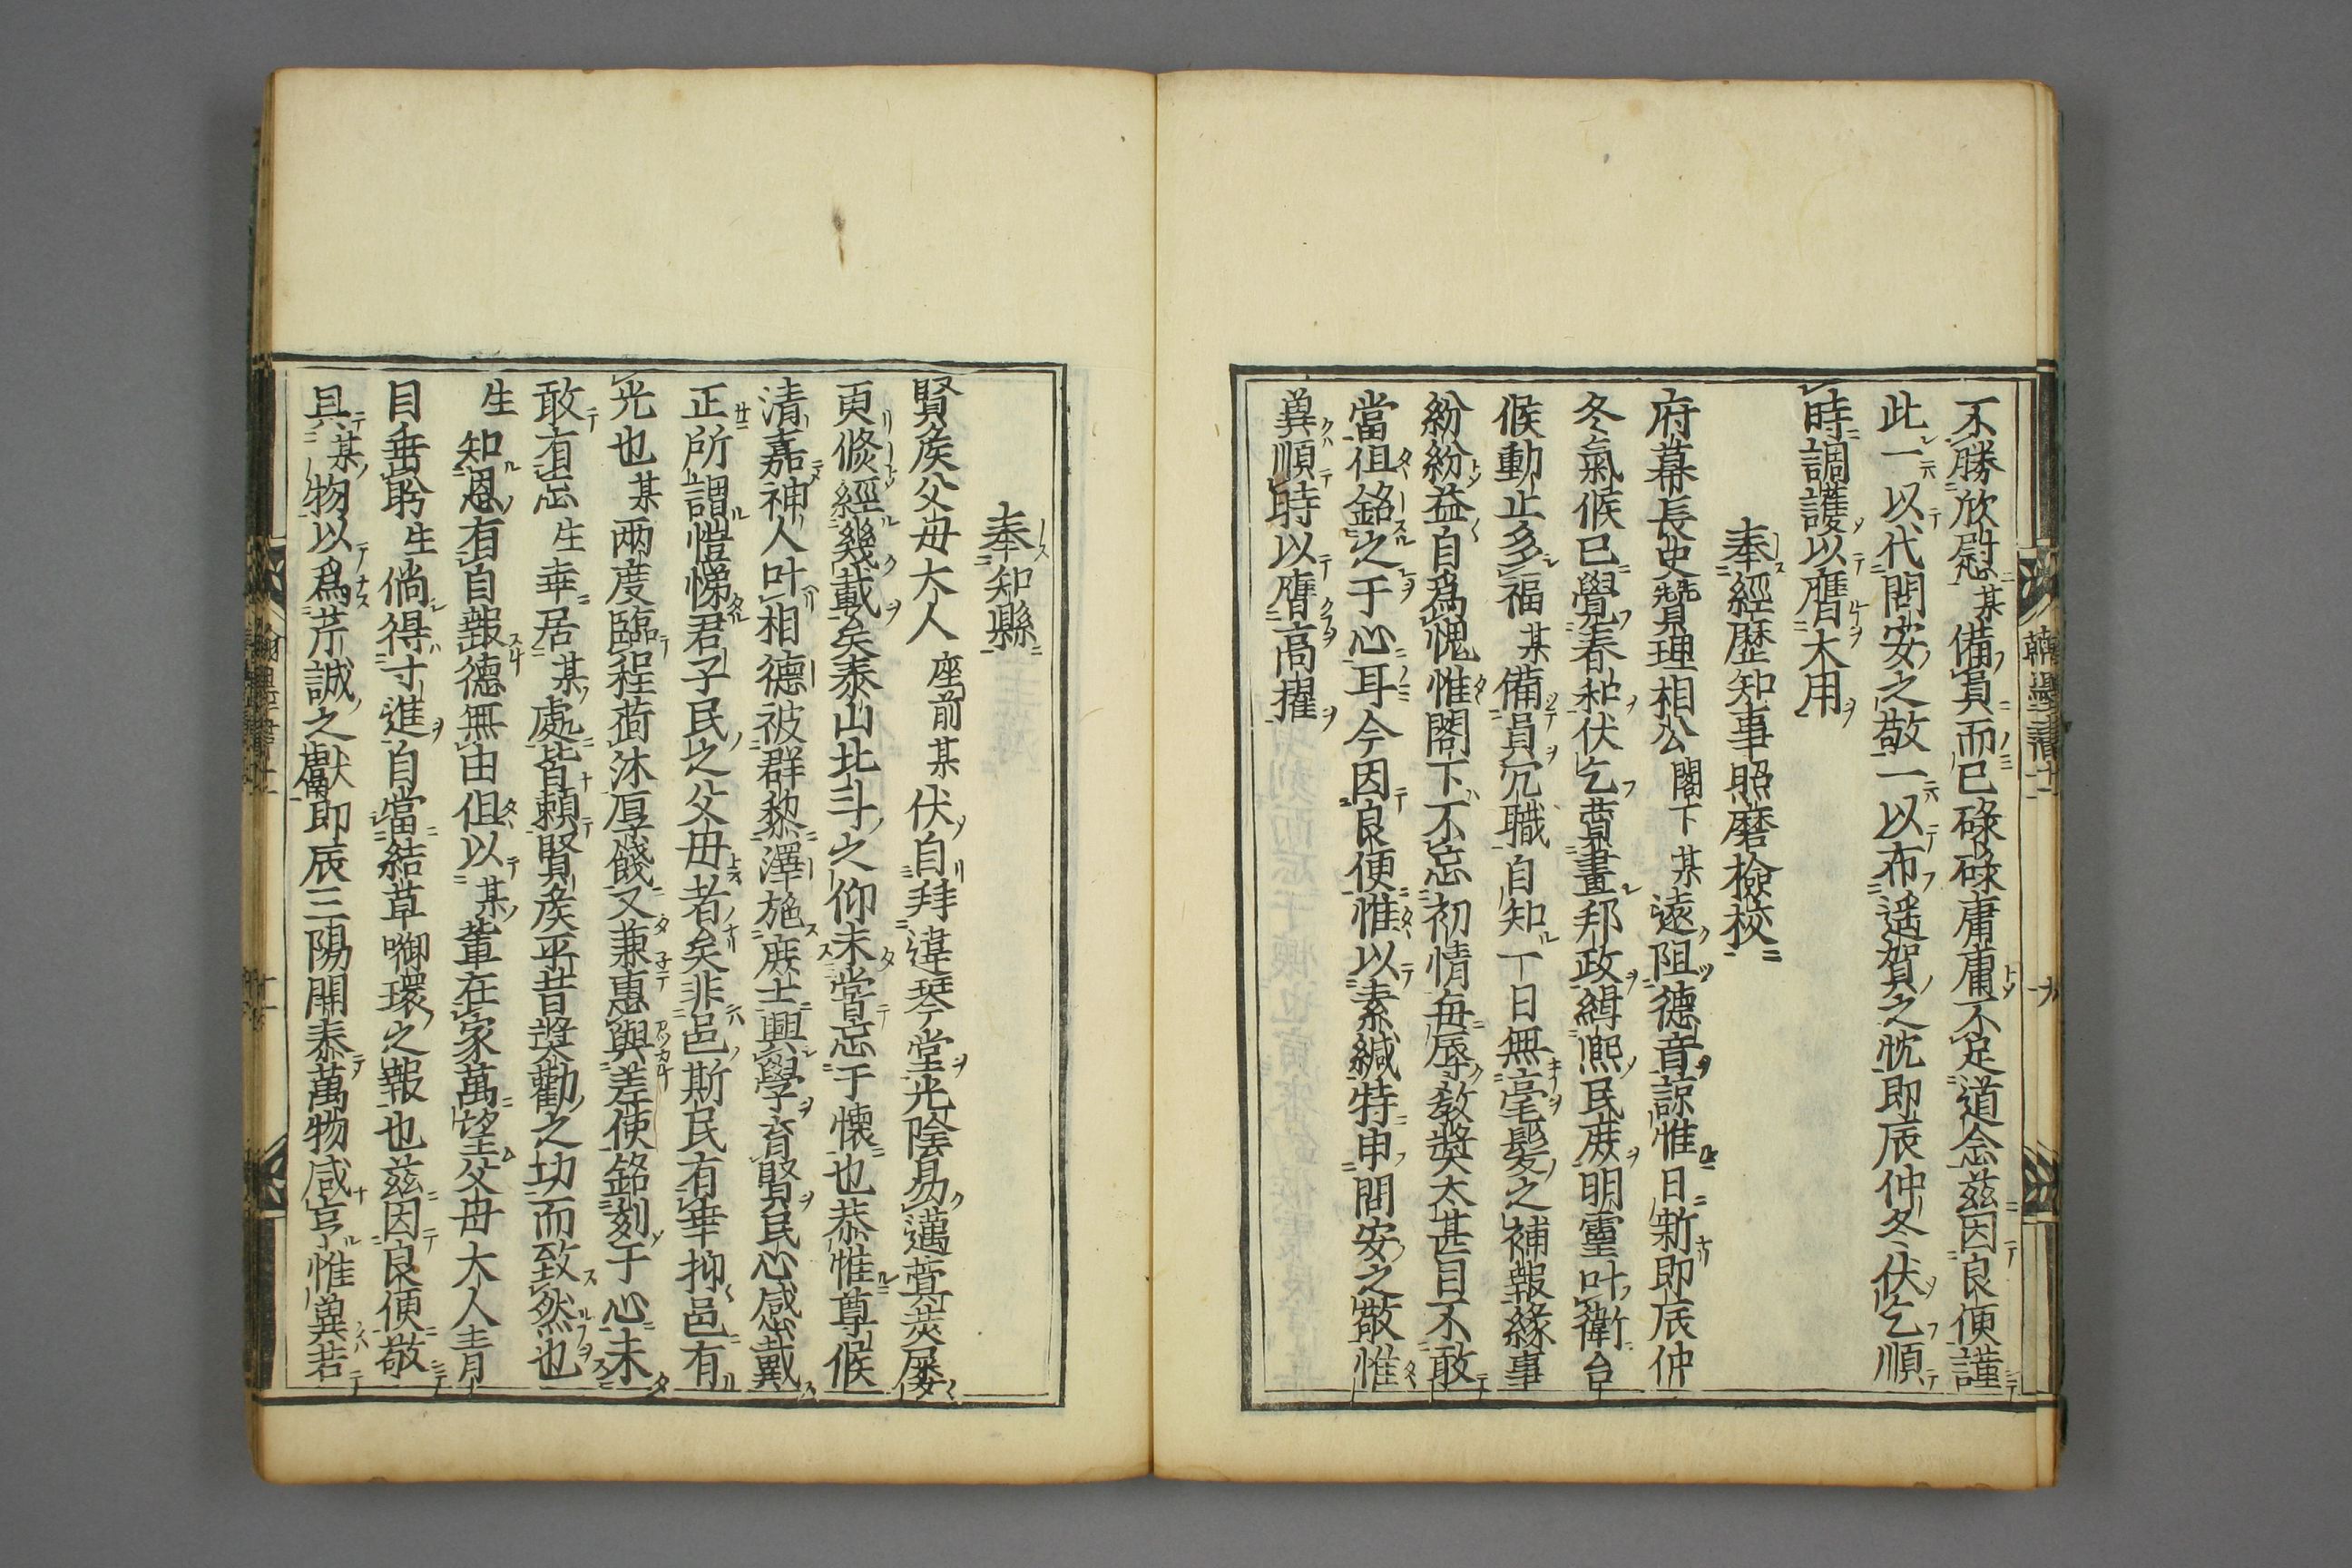 不勝欣慰某備員而已碌碌庸庸不足道念茲因良便謹
此一以代問安之敬一以布遥賀之忱即辰仲冬伏乞順
時調護以膺大用
奉經歷知事照磨檢校
府幕長史贊理相公閣下某遠阻德音諒惟日新即辰仲
冬氣候已覺春和伏乞賛畫邦政緝凞民庶明靈叶衛台
候動止多福某備員冗職自知一日無毫髪之補報緣事
紛紛益自爲愧惟閣下不忘初情每辱教奬太甚目不敢
當但銘之于心耳今因良便惟以素緘特申問安之敬惟
兾順時以膺高擢
奉知縣
賢矦父母大人座前某伏自拜違琴堂光陰易邁蓂莢屢
更倐經幾載矣泰山北斗之仰未嘗忘于懐也恭惟尊候
清嘉神人叶相德被群黎澤施庶士興學育賢民心感戴
正所謂愷悌君子民之父母者矣非邑斯民有幸抑邑有
光也某兩度臨程荷沐厚餞又兼惠與差使銘刻于心未
敢有忘生幸居某處皆頼賢矦平昔奬勸之功而致然也
生知恩有自報德無由但以某軰在家萬望父母大人青
目垂聆生倘得寸進自當結草啣環之報也茲因良便敬
具某物以爲芹誠之獻即辰三陽開泰萬物咸亨惟兾若